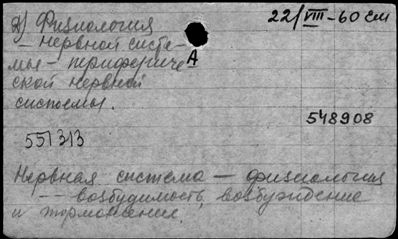 2) Физиология
22/VIII-60 см
- нервной систе-
мы - перифериче
A
ской нервной
системы.
548908
551313
Нервная система - физиология
-- возбудимость, возбуждение
и торможение.